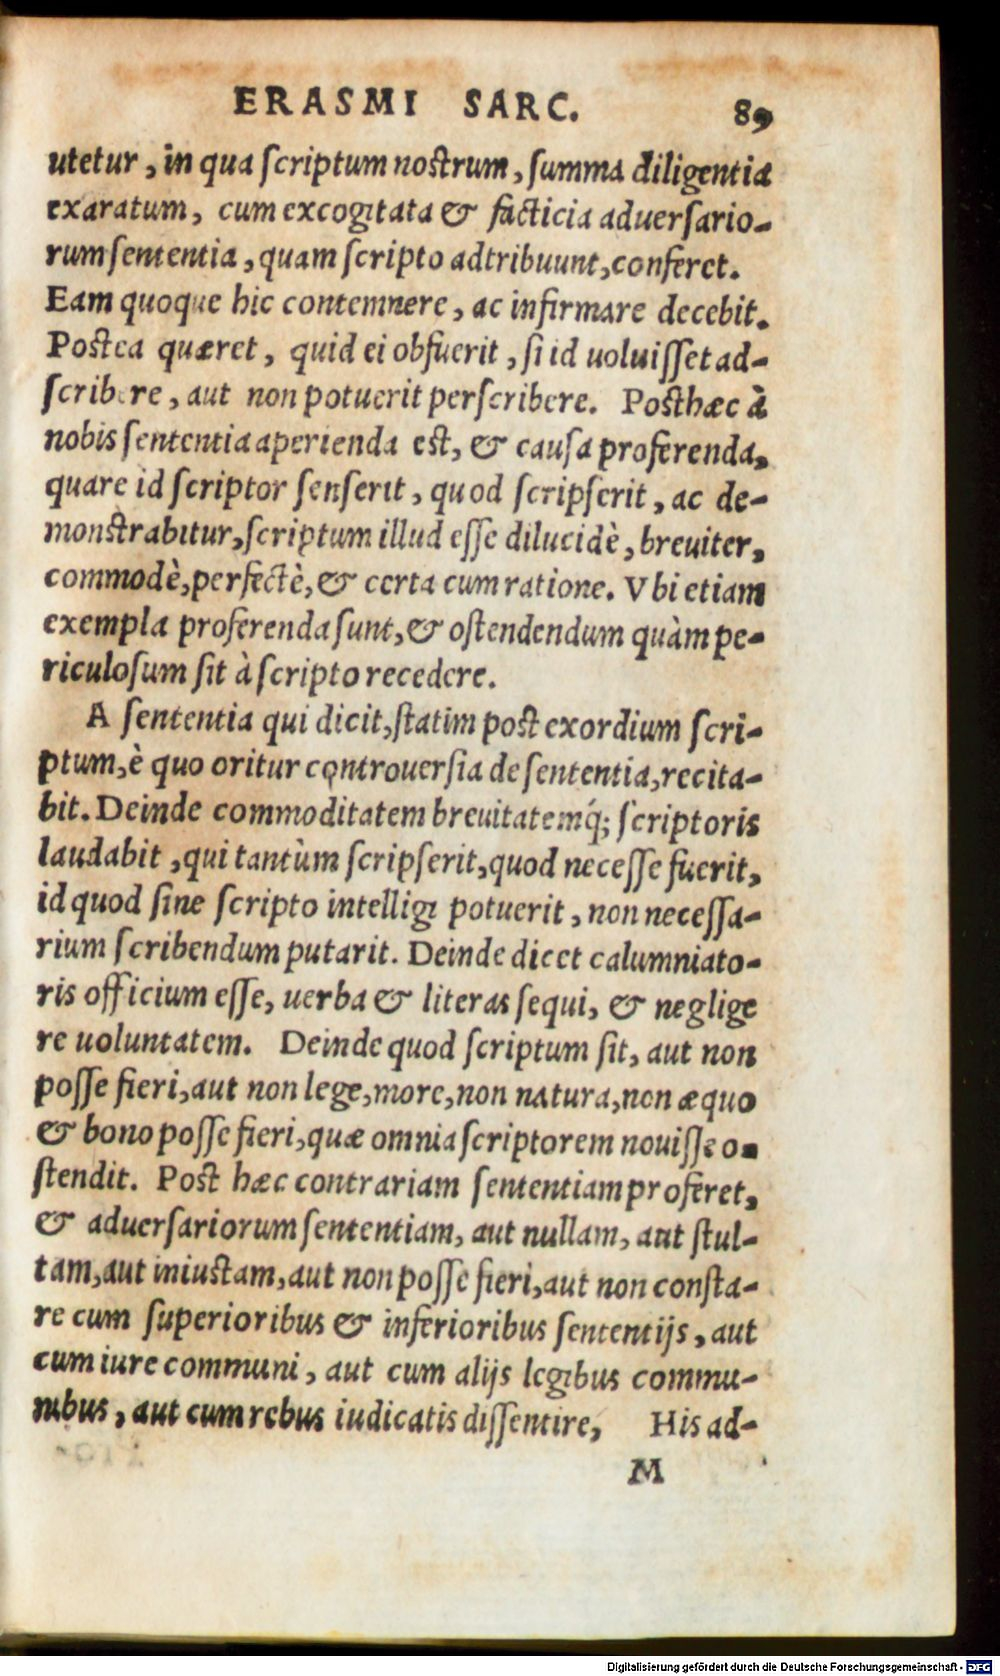 ERASMI SARC. 89
utetur, in qua scriptum nostrum, summa diligentia
exaratum, cum excogitata & facticia aduersario-
rum sententia, quam scripto adtribuunt, conferet.
Eam quoque hic contemnere, ac infirmare decebit.
Postea quæret, quid ei obfuerit, si id uoluisset ad-
scribere, aut non potuerit perscribere. Posthæc à
nobis sententia aperienda est, & causa proferenda,
quare id scriptor senserit, quod scripserit, ac de-
monstrabitur, scriptum illud esse dilucidè, breuiter,
commodè, perfectè, & certa cum ratione. Vbi etiam
exempla proferenda sunt, & ostendendum quàm pe-
riculosum sit à scripto recedere.
A sententia qui dicit, statim post exordium scri-
ptum, è quo oritur controuersia de sententia, recita-
bit. Deinde commoditatem breuitatemq́; scriptoris
laudabit, qui tantùm scripserit, quod necesse fuerit,
id quod sine scripto intelligi potuerit, non necessa-
rium scribendum putarit. Deinde dicet calumniato-
ris officium esse, uerba & literas sequi, & neglige
re uoluntatem. Deinde quod scriptum sit, aut non
posse fieri, aut non lege, more, non natura, non æquo
& bono posse fieri, quæ omnia scriptorem nouisse o-
stendit. Post hæc contrariam sententiam proferet,
& aduersariorum sententiam, aut nullam, aut stul-
tam, aut iniustam, aut non posse fieri, aut non consta-
re cum superioribus & inferioribus sententijs, aut
cum iure communi, aut cum alijs legibus commu-
nibus, aut cum rebus iudicatis dissentire, His ad-
M
Digitalisierung gefördert durch die Deutsche Forschungsgemeinschaft - DFG